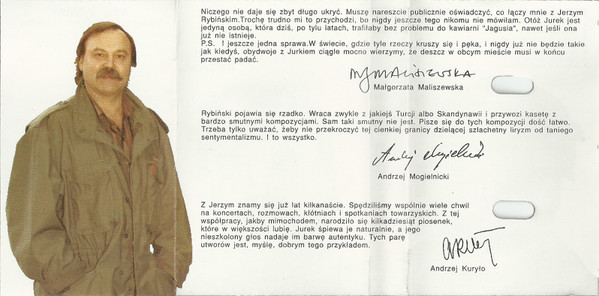 Niczego nie daje się zbyt długo ukryć. Muszę nareszcie publicznie oświadczyć, co łączy mnie z Jerzym
Rybińskim.Trochę mi to przychodzi, bo nigdy jeszcze tego nikomu nie mówiłam. Otóż Jurek jest
jedyną osobą, która dziś, po tylu latach, trafiłaby bez problemu do kawiarni "Jagusia", nawet jeśli ona
już nie istnieje.
P.S. ! jeszcze jedna sprawa.W świecie, gdzie tyle rzeczy kruszy się i pęka, i nigdy już nie będzie takie
jak kiedyś, obydwoje z Jurkiem ciągle mocno wierzymy, że deszcz w obcym mieście musi w końcu
przestać padać.
Małgorzata Maliszewska
Rybiński pojawia się rzadko. Wraca zwykle z jakiejś Turcji albo Skandynawii i przywozi kasetę z
bardzo smutnymi kompozycjami. Sam taki smutny nie jest. Pisze się do tych kompozycji dość łatwo.
Trzeba tylko uważać, żeby nie przekroczyć tej cienkiej granicy dzielącej szlachetny liryzm od taniego
sentymentalizmu. I to wszystko.
Andrzej Mogielnicki
Z Jerzym znamy się już lat kilkanaście. Spędziliśmy wspólnie wiele chwil
na koncertach, rozmowach, kłótniach i spotkaniach towarzyskich. Z tej
współpracy, jakby mimochodem, narodziło się kilkadziesiąt piosenek,
które w większości lubię. Jurek śpiewa je naturalnie, a jego
nieszkolony głos nadaje im barwę autentyku. Tych parę
utworów jest, myślę, dobrym tego przykładem.
Andrzej Kuryło